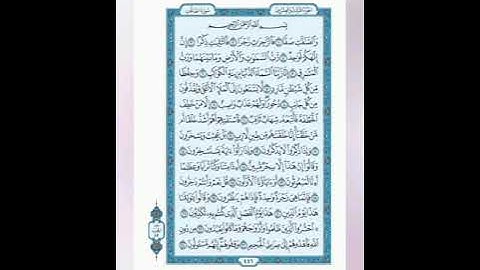 سورة الصافات
الجزء الثالث والعشرون
بسم الله الرحمن الرحيم
والصافات صفا ١ فالزاجرات زجرا ٢ فالتاليات ذكرا ٣ إن
إلهكم لواحد ٤ رب السماوات والأرض وما بينهما ورب
المشارق ٥ إنا زينا السماء الدنيا بزينة الكواكب ٦ وحفظا
من كل شيطان مارد ٧ لا يسمعون إلى الملإ الأعلى ويقذفون
من كل جانب ٨ دحورا ولهم عذاب واصب ٩ إلا من خطف
الخطفة فأتبعه شهاب ثاقب ١٠ فاستفتهم أهم أشد خلقا أم
من خلقنا إنا خلقناهم من طين لازب ١١ بل عجبت ويسخرون
١٢ وإذا ذكروا لا يذكرون ١٣ وإذا رأوا آية يستسخرون ١٤
وقالوا إن هذا إلا سحر مبين ١٥ أإذا متنا وكنا ترابا وعظاما
أإنا لمبعوثون ١٦ أوآباؤنا الأولون ١٧ قل نعم وأنتم داخرون ١٨
فإنما هي زجرة واحدة فإذا هم ينظرون ١٩ وقالوا يا ويلنا
هذا يوم الدين ٢٠ هذا يوم الفصل الذي كنتم به تكذبون ٢١
احشروا الذين ظلموا وأزواجهم وما كانوا يعبدون ٢٢ من دون
الله فاهدوهم إلى صراط الجحيم ٢٣ وقفوهم إنهم مسئولون ٢٤
٤٤٦